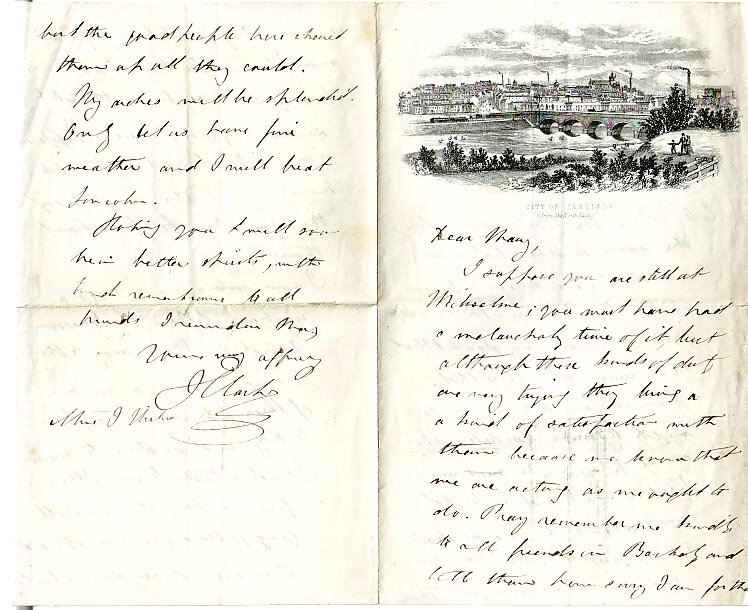 CITY OF CARLISLE
(from the North East)
Dear Mary,
I suppose you are still at
; you must have had
a melancholy time of it but
although these kinds of
are very trying they bring a
a kind of satisfaction with
them because we know that
we are acting as we ought to
do. Pray remember me kindly
to all friends in and
tell them how sorry I am for the
but the good people here cheered
them up all they could.
My will be splendid.
Only let us have fine
weather and I will beat
Hoping you will soon
be in better spirits, with
kind remembrances to all
friends I remain dear Mary
Yours very affecy
J Clarke